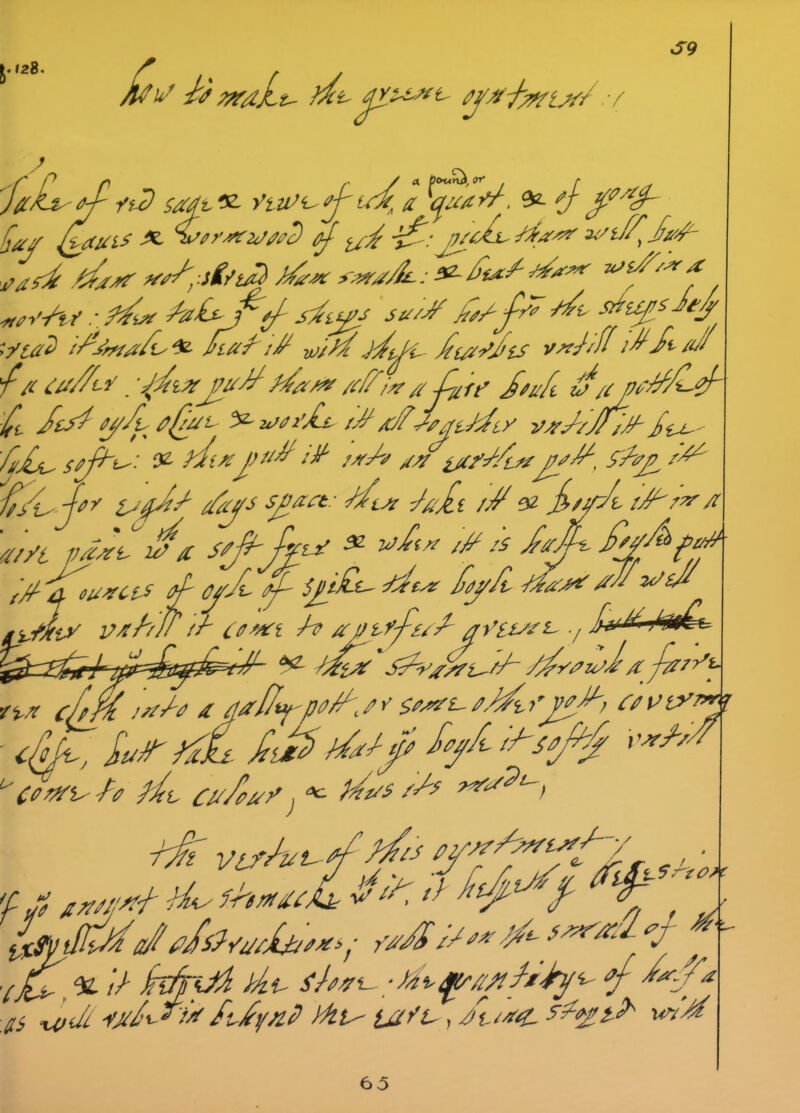 59
128.
how to make the greene oyntment
a pound, or
Take of red sage & rewe of ech a quart, & of yong
bay leaues & wormwood of ech: picke them well, but
wash them not, shred them smalle: & beat them well in a
morter: then take of sheeps suit hot fro the sheeps bely
shread it smale & beat it with these hearbes vntill it be all
of a culler: then put them all in a faire boule a pottle of
the best oyle oliue & worke it all together vntill it bee
like softe: & then put it into an earthen pott, stop it
close for eight days space: then take it & boyle it in a
faire panne a soft fyer & when it is halfe boyld put
it 4 ounces of oyle of spike then boyle them all well
gether vntill it come to a perfect greene.
& then straine it throwh a faire
clen cloth into a gallypott, or some other pott, covering
it close, but take heed that yo boyle it softly vntill
it come to the culour, & thus its made,
the vertue of this oyntment
If yo anoynt the stomacke it, it helpeth digestion
expelleth all obstructions; rubb it on the small of the
backe, & it helpeth the stone: the quantitye of halfe a
as well rubed in behynd the eare, being stoped with
65